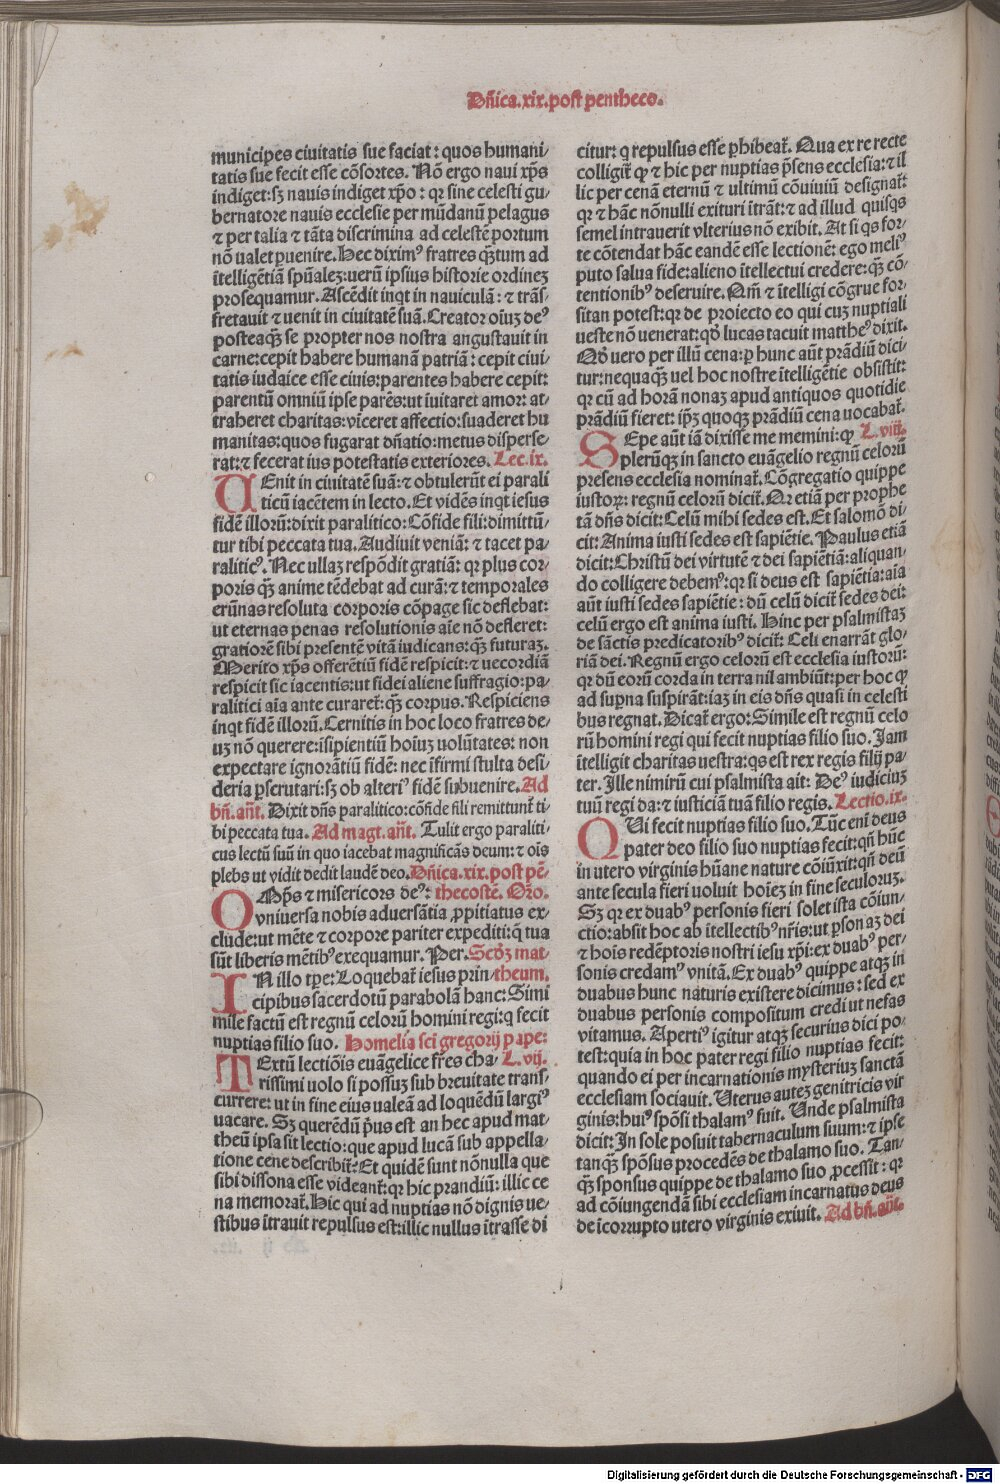 Dñica.xix.post pentheco.
municipes ciuitatis sue faciat: quos humani/
tatis sue fecit esse cõsortes. Nõ ergo naui xp̃s
indiget:sꝫ nauis indiget xp̃o: qꝛ sine celesti gu/
bernatore nauis ecclesie per mũdanũ pelagus
⁊ per talia ⁊ tãta discrimina ad celestẽ portum
nõ ualet ꝑuenire. Hec diximꝰ fratres qꝫ̃tum ad
ĩtelligẽtiã spũalez:uerũ ipsius historie ordinez
prosequamur. Ascẽdit inqt in nauiculã: ⁊ trãs/
fretauit ⁊ uenit in ciuitatẽ suã. Creator oĩuꝫ deꝰ
posteaqꝫ̃ se propter nos nostra angustauit in
carne:cepit habere humanã patriã: cepit ciui/
tatis iudaice esse ciuis:parentes habere cepit:
parentũ omniũ ipse parẽs:ut ĩuitaret amor: at/
traheret charitas:viceret affectio:suaderet hu
manitas:quos fugarat dñatio:metus disperse/
rat:⁊ fecerat ius potestatis exteriores. Lec.ix.
UEnit in ciuitatẽ suã:⁊ obtulerũt ei parali
ticũ iacẽtem in lecto. Et vidẽs inqt iesus
fidẽ illorũ:dixit paralitico:Cõfide fili:dimittũ/
tur tibi peccata tua. Audiuit veniã: ⁊ tacet pa/
raliticꝰ. Nec ullaꝫ respõdit gratiã: qꝛ plus cor/
poris qꝫ̃ anime tẽdebat ad curã:⁊ temporales
erũnas resoluta corporis cõpage sic deflebat:
ut eternas penas resolutionis aĩe nõ defleret:
gratiorẽ sibi presentẽ vitã iudicans:qꝫ̃ futuraꝫ.
Merito xp̃s offerẽtiũ fidẽ respicit:⁊ uecordiã
respicit sic iacentis:ut fidei aliene suffragio:pa/
ralitici aĩa ante curaret̃: qꝫ̃ corpus. Respiciens
inqt fidẽ illorũ. Cernitis in hoc loco fratres de/
uꝫ nõ querere:ĩsipientiũ hoĩuꝫ uolũtates: non
expectare ignorãtiũ fidẽ: nec ĩfirmi stulta desi/
deria ꝑscrutari:sꝫ ob alteriꝰ fidẽ subuenire. Ad
bñ.añt. Dixit dñs paralitico:cõfide fili remittunt̃ ti/
bi peccata tua. Ad magt.añt. Tulit ergo paraliti/
cus lectũ suũ in quo iacebat magnificãs deum:⁊ oĩs
plebs ut vidit dedit laudẽ deo. Dñica.xix.post pẽ/
OMp̃s ⁊ misericors deꝰ: thecostẽ. Oꝛ̃o.
vniuersa nobis aduersãtia ꝓpitiatus ex/
clude:ut mẽte ⁊ corpore pariter expediti:q̃ tua
sũt liberis mẽtibꝰ exequamur. Per. Scdꝫ mat/
IN illo tp̃e:Loquebat̃ iesus prin/ theum.
cipibus sacerdotũ parabolã hanc:Simi
mile factũ est regnũ celorũ homini regi:q fecit
nuptias filio suo. Homelia sci gregorij pape:
TExtũ lectiõis euãgelice fr̃es cha/ L.vij.
rissimi uolo si possuꝫ sub breuitate trans/
currere:ut in fine eius valeã ad loquẽdũ largiꝰ
vacare. Sꝫ querẽdũ p̃us est an hec apud mat/
theũ ipsa sit lectio:que apud lucã sub appella/
tione cene describit̃:Et quidẽ sunt nõnulla que
sibi dissona esse videant̃:qꝛ hic prandiũ: illic ce
na memorat̃. Hic qui ad nuptias nõ dignis ue/
stibus ĩtrauit repulsus est:illic nullus ĩtrasse di
citur: q repulsus esse ꝑhibeat̃. Qua ex re recte
colligit̃ qꝫ ⁊ hic per nuptias p̃sens ecclesia:⁊ il
lic per cenã eternũ ⁊ ultimũ cõuiuiũ designat̃:
qꝛ ⁊ hãc nõnulli exituri ĩtrãt:⁊ ad illud quisqs
semel intrauerit vlterius nõ exibit. At si qs for/
te cõtendat hãc eandẽ esse lectionẽ: ego meliꝰ
puto salua fide:alieno ĩtellectui credere:qꝫ̃ cõ/
tentionibꝰ deseruire. Nã ⁊ ĩtelligi cõgrue for/
sitan potest:qꝛ de proiecto eo qui cuꝫ nuptiali
ueste nõ venerat:qð lucas tacuit mattheꝰ dixit.
Qð uero per illũ cena:ꝑ hunc aũt prãdiũ dici/
tur:nequaqꝫ̃ uel hoc nostre ĩtelligẽtie obsistit:
qꝛ cũ ad horã nonaꝫ apud antiquos quotidie
prãdiũ fieret: ipꝫ quoqꝫ prãdiũ cena uocabat̃.
SEpe aũt iã dixisse me memini:qꝫ L.viij.
plerũqꝫ in sancto euãgelio regnũ celorũ
presens ecclesia nominat̃. Cõgregatio quippe
iustoꝝ: regnũ celorũ dicit̃. Qꝛ etiã per prophe
tã dñs dicit:Celũ mihi sedes est. Et salomõ di/
cit: Anima iusti sedes est sapiẽtie. Paulus etiã
dicit:Christũ dei virtutẽ ⁊ dei sapiẽtiã:aliquan/
do colligere debemꝰ:qꝛ si deus est sapiẽtia:aĩa
aũt iusti sedes sapiẽtie: dũ celũ dicit̃ sedes dei:
celũ ergo est anima iusti. Hinc per psalmistaꝫ
de sãctis predicatoribꝰ dicit̃: Celi enarrãt glo/
riã dei. Regnũ ergo celorũ est ecclesia iustorũ:
qꝛ dũ eorũ corda in terra nil ambiũt:per hoc qꝫ
ad suꝑna suspirãt:iaꝫ in eis dñs quasi in celesti
bus regnat. Dicat̃ ergo:Simile est regnũ celo
rũ homini regi qui fecit nuptias filio suo. Jam
ĩtelligit charitas uestra:qs est rex regis filij pa/
ter. Ille nimirũ cui psalmista ait: Deꝰ iudiciuꝫ
tuũ regi da:⁊ iusticiã tuã filio regis. Lectio.ix.
QUi fecit nuptias filio suo. Tũc enĩ deus
pater deo filio suo nuptias fecit:qñ hũc
in utero virginis hũane nature cõiũxit:qñ deũ
ante secula fieri uoluit hoĩeꝫ in fine seculoruꝫ.
Sꝫ qꝛ ex duabꝰ personis fieri solet ista cõiun/
ctio:absit hoc ab ĩtellectibꝰ nr̃is:ut ꝑsonaꝫ dei
⁊ hoĩs redẽptoris nostri iesu xp̃i:ex duabꝰ per/
sonis credamꝰ vnitã. Ex duabꝰ quippe atqꝫ in
duabus hunc naturis existere dicimus: sed ex
duabus personis compositum credi ut nefas
vitamus. Apertiꝰ igitur atqꝫ securius dici po/
test:quia in hoc pater regi filio nuptias fecit:
quando ei per incarnationis mysteriuꝫ sanctã
ecclesiam sociauit. Uterus auteꝫ genitricis vir
ginis:huiꝰ spõsi thalamꝰ fuit. Unde psalmista
dicit:In sole posuit tabernaculum suum:⁊ ipse
tanqꝫ̃ spõsus procedẽs de thalamo suo. Tan/
qꝫ̃ sponsus quippe de thalamo suo ꝓcessit: qꝛ
ad cõiungendã sibi ecclesiam incarnatus deus
de ĩcorrupto utero virginis exiuit. Ad bñ.añt.
Digitalisierung gefördert durch die Deutsche Forschungsgemeinschaft - DFG